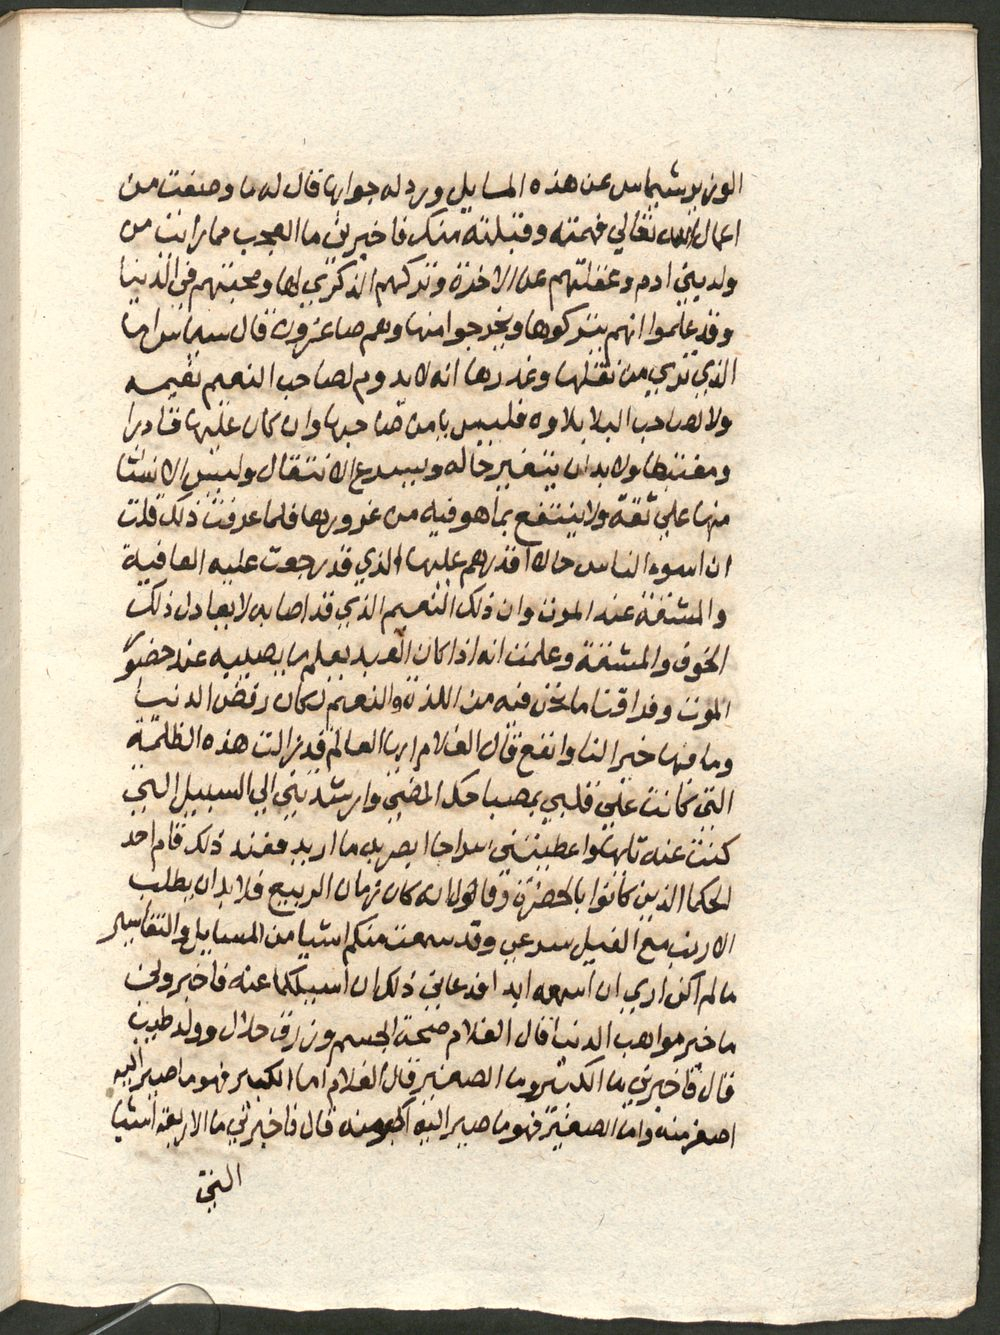 الوزير شيماس عن هذه المسايل ورد له جوابها قال له ما وصفت من
اعمال الله تعالي فهمته وقبلته منك فاخبرني ما العجب مما رايت من
ولد بني ادم وغفلتهم عن الاخرة وتركهم الذكري لها ومحبتهم في الدنيا
وقد علموا انهم يتركوها ويخرجوا منها وهم صاغرون قال شيماس انها
الذي تري من تقتلها وغدرها انه لا يدوم لصاحب النعيم نعيمه
ولا لصاحب البلا بلاوه فليس يامن صاحبها وان كان عليها قادرا
ومغتبطا ولابد ان يتغير حاله ويسرع الانتقال وليس الانسان
منها علي ثقة ولا ينتفع بما هو فيه من غرورها فلما عرفت ذلك قلت
ان اسوء الناس حالا اقدرهم عليها الذي قد رجعت عليه العافية
والمشقة عند الموت وان ذلك النعيم الذي قد اصابه لا يعادل ذلك
الخوف والمشقة وعلمت انه اذا كان العبد يعلم ما يصيبه عند حضور
الموت وفراقنا ما نحن فيه من اللذة والنعيم لكان رفض الدنيا
وما فيها خير النا وانفع قال الغلام ايها العالم قد زالت هذه الظلمة
التي كانت علي قلبي بمصباحك المضي وارشدتني الي السبيل التي
كنت عنه تايها واعطيتني سراجا ابصر به ما اريد فعند ذلك قام احد
الحكما الذين كانوا بالحضرة وقالوا انه كان زمان الربيع فلابد ان يطلب
الارنب مع الفيل سرعي وقد سمعت منكم اشيا من المسايل والتفاسير
ما لم اكن اري ان اسمعه ابدا فدعاني ذلك ان اسيلكما عنه فاخبروني
ما خير مواهب الدنيا قال الغلام صحة الجسم ورزق حلال وولد طيب
قال فاخبرني ما الكبير وما الصغير قال الغلام اما الكبير فهو ما صبر اليه
اصغر منه واما الصغير فهو ما صبر اليه اكبر منه قال فاخبرني ما الاربعة اشيا
التي